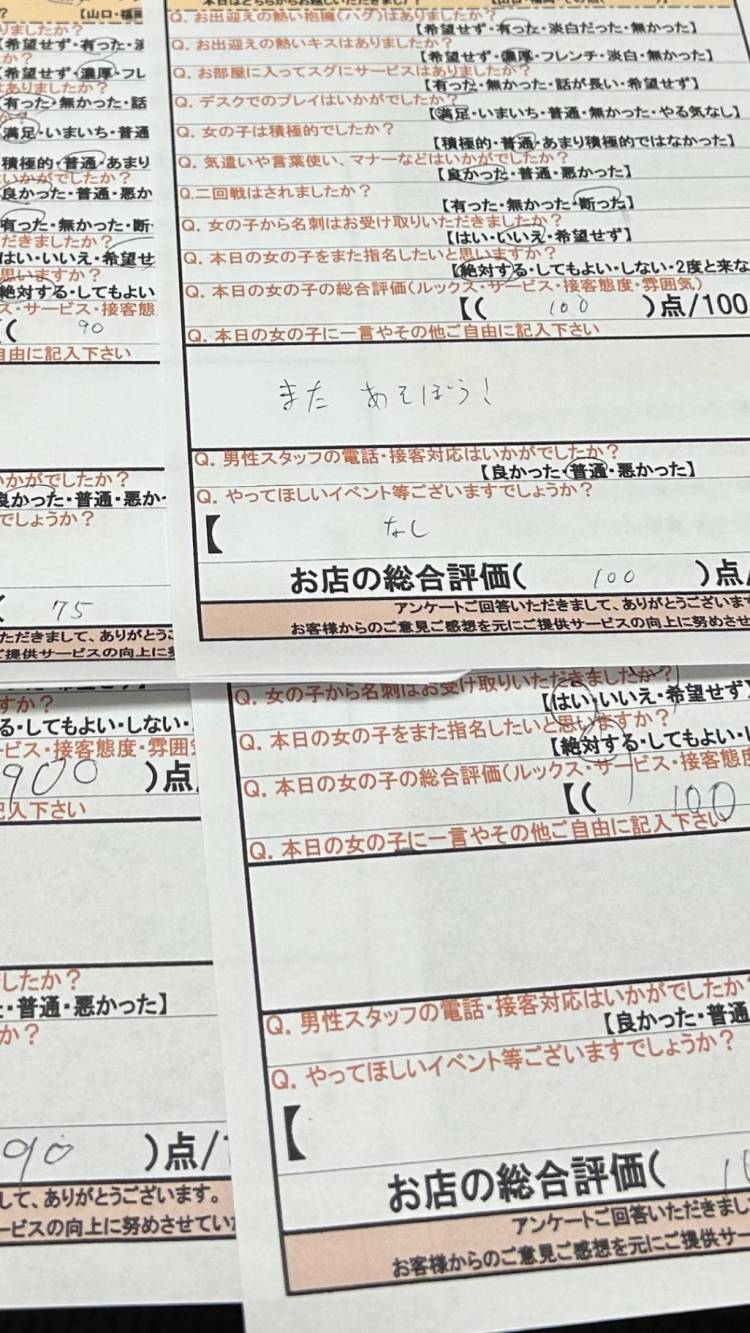 Q. お出迎えの熱い抱擁(ハグ)はありましたか?
【希望せず・有った・淡白だった・無かった】
Q. お出迎えの熱いキスはありましたか?
【希望せず・濃厚・フレンチ・淡白・無かった】
Q. お部屋に入ってスグにサービスはありましたか?
【有った・無かった・話が長い・希望せず】
Q. デスクでのプレイはいかがでしたか?
【満足・いまいち・普通・無かった・やる気なし】
Q. 女の子は積極的でしたか?
【積極的・普通・あまり積極的ではなかった】
Q. 気遣いや言葉使い、マナーなどはいかがでしたか?
【良かった・普通・悪かった】
Q.二回戦はされましたか?
【有った・無かった・断った】
Q. 女の子から名刺はお受け取りいただきましたか?
【はい・いいえ・希望せず】
Q. 本日の女の子をまた指名したいと思いますか?
【絶対する・してもよい・しない・2度と来な
Q. 本日の女の子の総合評価(ルックス・サービス・接客態度・雰囲気)
【( 100 )点/100
Q. 本日の女の子に一言やその他ご自由に記入下さい
また あそぼう!
Q. 男性スタッフの電話・接客対応はいかがでしたか?
【良かった・普通・悪かった】
Q. やってほしいイベント等ございますでしょうか?
【 なし
お店の総合評価( 100 )点/
アンケートご回答いただきまして、ありがとうございます
お客様からのご意見ご感想を元にご提供サービスの向上に努めさせ
りましたか?
【希望せず・有った・淡
か?
【希望せず・濃厚・フレ
はありましたか?
【有った・無かった・話
か?
満足・いまいち・普通
積極的・普通・あまり
いかがでしたか?
良かった・普通・悪か
有った・無かった・断
だきましたか?
はい・いいえ・希望せ
思いますか?
絶対する・してもよい
ス・サービス・接客態
( 90
自由に記入下さい
いかがでしたか?
良かった・普通・悪か
でしょうか?
( 75
ただきまして、ありがとうご
ご提供サービスの向上に
すか?
る・してもよい・しない・
ービス・接客態度・雰囲気
900 )点
記入下さい
したか?
・普通・悪かった】
か?
90 )点/1
して、ありがとうございます。
ービスの向上に努めさせてい
Q. 女の子から名刺はお受け取りいただきましたか?
【はい・いいえ・希望せず】
Q. 本日の女の子をまた指名したいと思いますか?
【絶対する・してもよい・し
Q. 本日の女の子の総合評価(ルックス・サービス・接客態度
【( 100
Q. 本日の女の子に一言やその他ご自由に記入下さい
Q. 男性スタッフの電話・接客対応はいかがでしたか?
【良かった・普通
Q. やってほしいイベント等ございますでしょうか?
【
お店の総合評価( 10
アンケートご回答いただきまし
お客様からのご意見ご感想を元にご提供サー